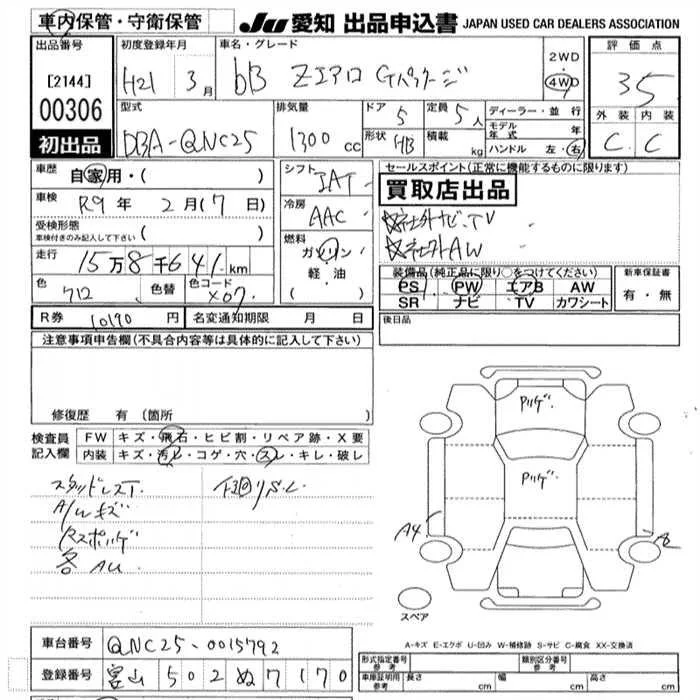 車内保管・守衛保管
JU 愛知 出品申込書 JAPAN USED CAR DEALERS ASSOCIATION
出品番号
[2144]
00306
初出品
初度登録年月
H21 3月
車名・グレード
bB Zエアロ Gパッケージ
2WD
4WD
評価点
3.5
外装 内装
C C
型式
DBA-QNC25
排気量
1300 cc
ドア 5
形状 HB
定員 5人
積載 kg
ディーラー・並行
モデル年式 年
ハンドル 左・右
車歴 自家用・( )
車検 R9年 2月(7日)
受検形態
車検付きのみ記入して下さい ( )
走行 15万8千641km
色 712 色替 色コード X07
シフト IAT
冷房 AAC
燃料 ガソリン
軽・油
( )
セールスポイント(正常に機能するものに限ります)
買取店出品
社外ナビ.TV
社外AW
装備品(純正品に限り○をつけてください)
PS PW エアB AW
SR ナビ TV カワシート
新車保証書
有・無
R券 10190円 名変通知期限 月 日
後日品
注意事項申告欄(不具合内容等は具体的に記入して下さい)
修復歴 有(箇所
検査員記入欄
FW キズ・飛石・ヒビ割・リペア跡・X要
内装 キズ・汚レ・コゲ・穴・スレ・キレ・破レ
スタッドレスT.
A/Wキズ
下回りS.C
各AU
Pハゲ.
Pハゲ.
A4
スペア
A-キズ E-エクボ U-凹み W-補修跡 S-サビ C-腐食 XX-交換済
車台番号 QNC25-0015792
登録番号 富山 502 ぬ 7170
形式指定番号 参考
類別区分番号 参考
車庫証明用 参考 長さ cm 幅 cm 高さ cm